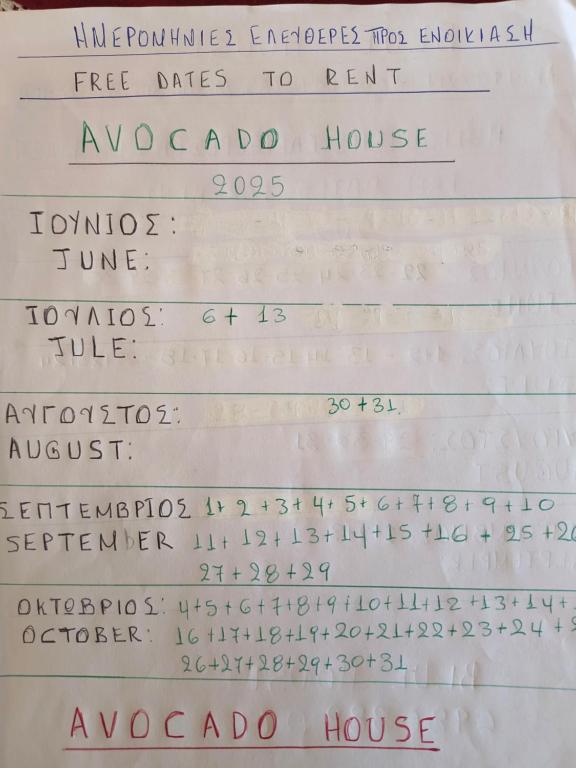 ΗΜΕΡΟΜΗΝΙΕΣ ΕΛΕΥΘΕΡΕΣ ΠΡΟΣ ΕΝΟΙΚΙΑΣΗ
FREE DATES TO RENT
AVOCADO HOUSE
2025
ΙΟΥΝΙΟΣ:
JUNE:
ΙΟΥΛΙΟΣ: 6 + 13
JULE:
ΑΥΓΟΥΣΤΟΣ: 30+31.
AUGUST:
ΣΕΠΤΕΜΒΡΙΟΣ 1+ 2 +3+ 4+ 5+ 6+7+8+9+10
SEPTEMBER 11+ 12+13+14+15 +16 + 25 +26
27+28+29
ΟΚΤΩΒΡΙΟΣ: 4+5+6+7+8+9+10+11+12+13+14+
OCTOBER: 16+17+18+19+20+21+22+23+24 +
26+27+28+29+30+31
AVOCADO HOUSE